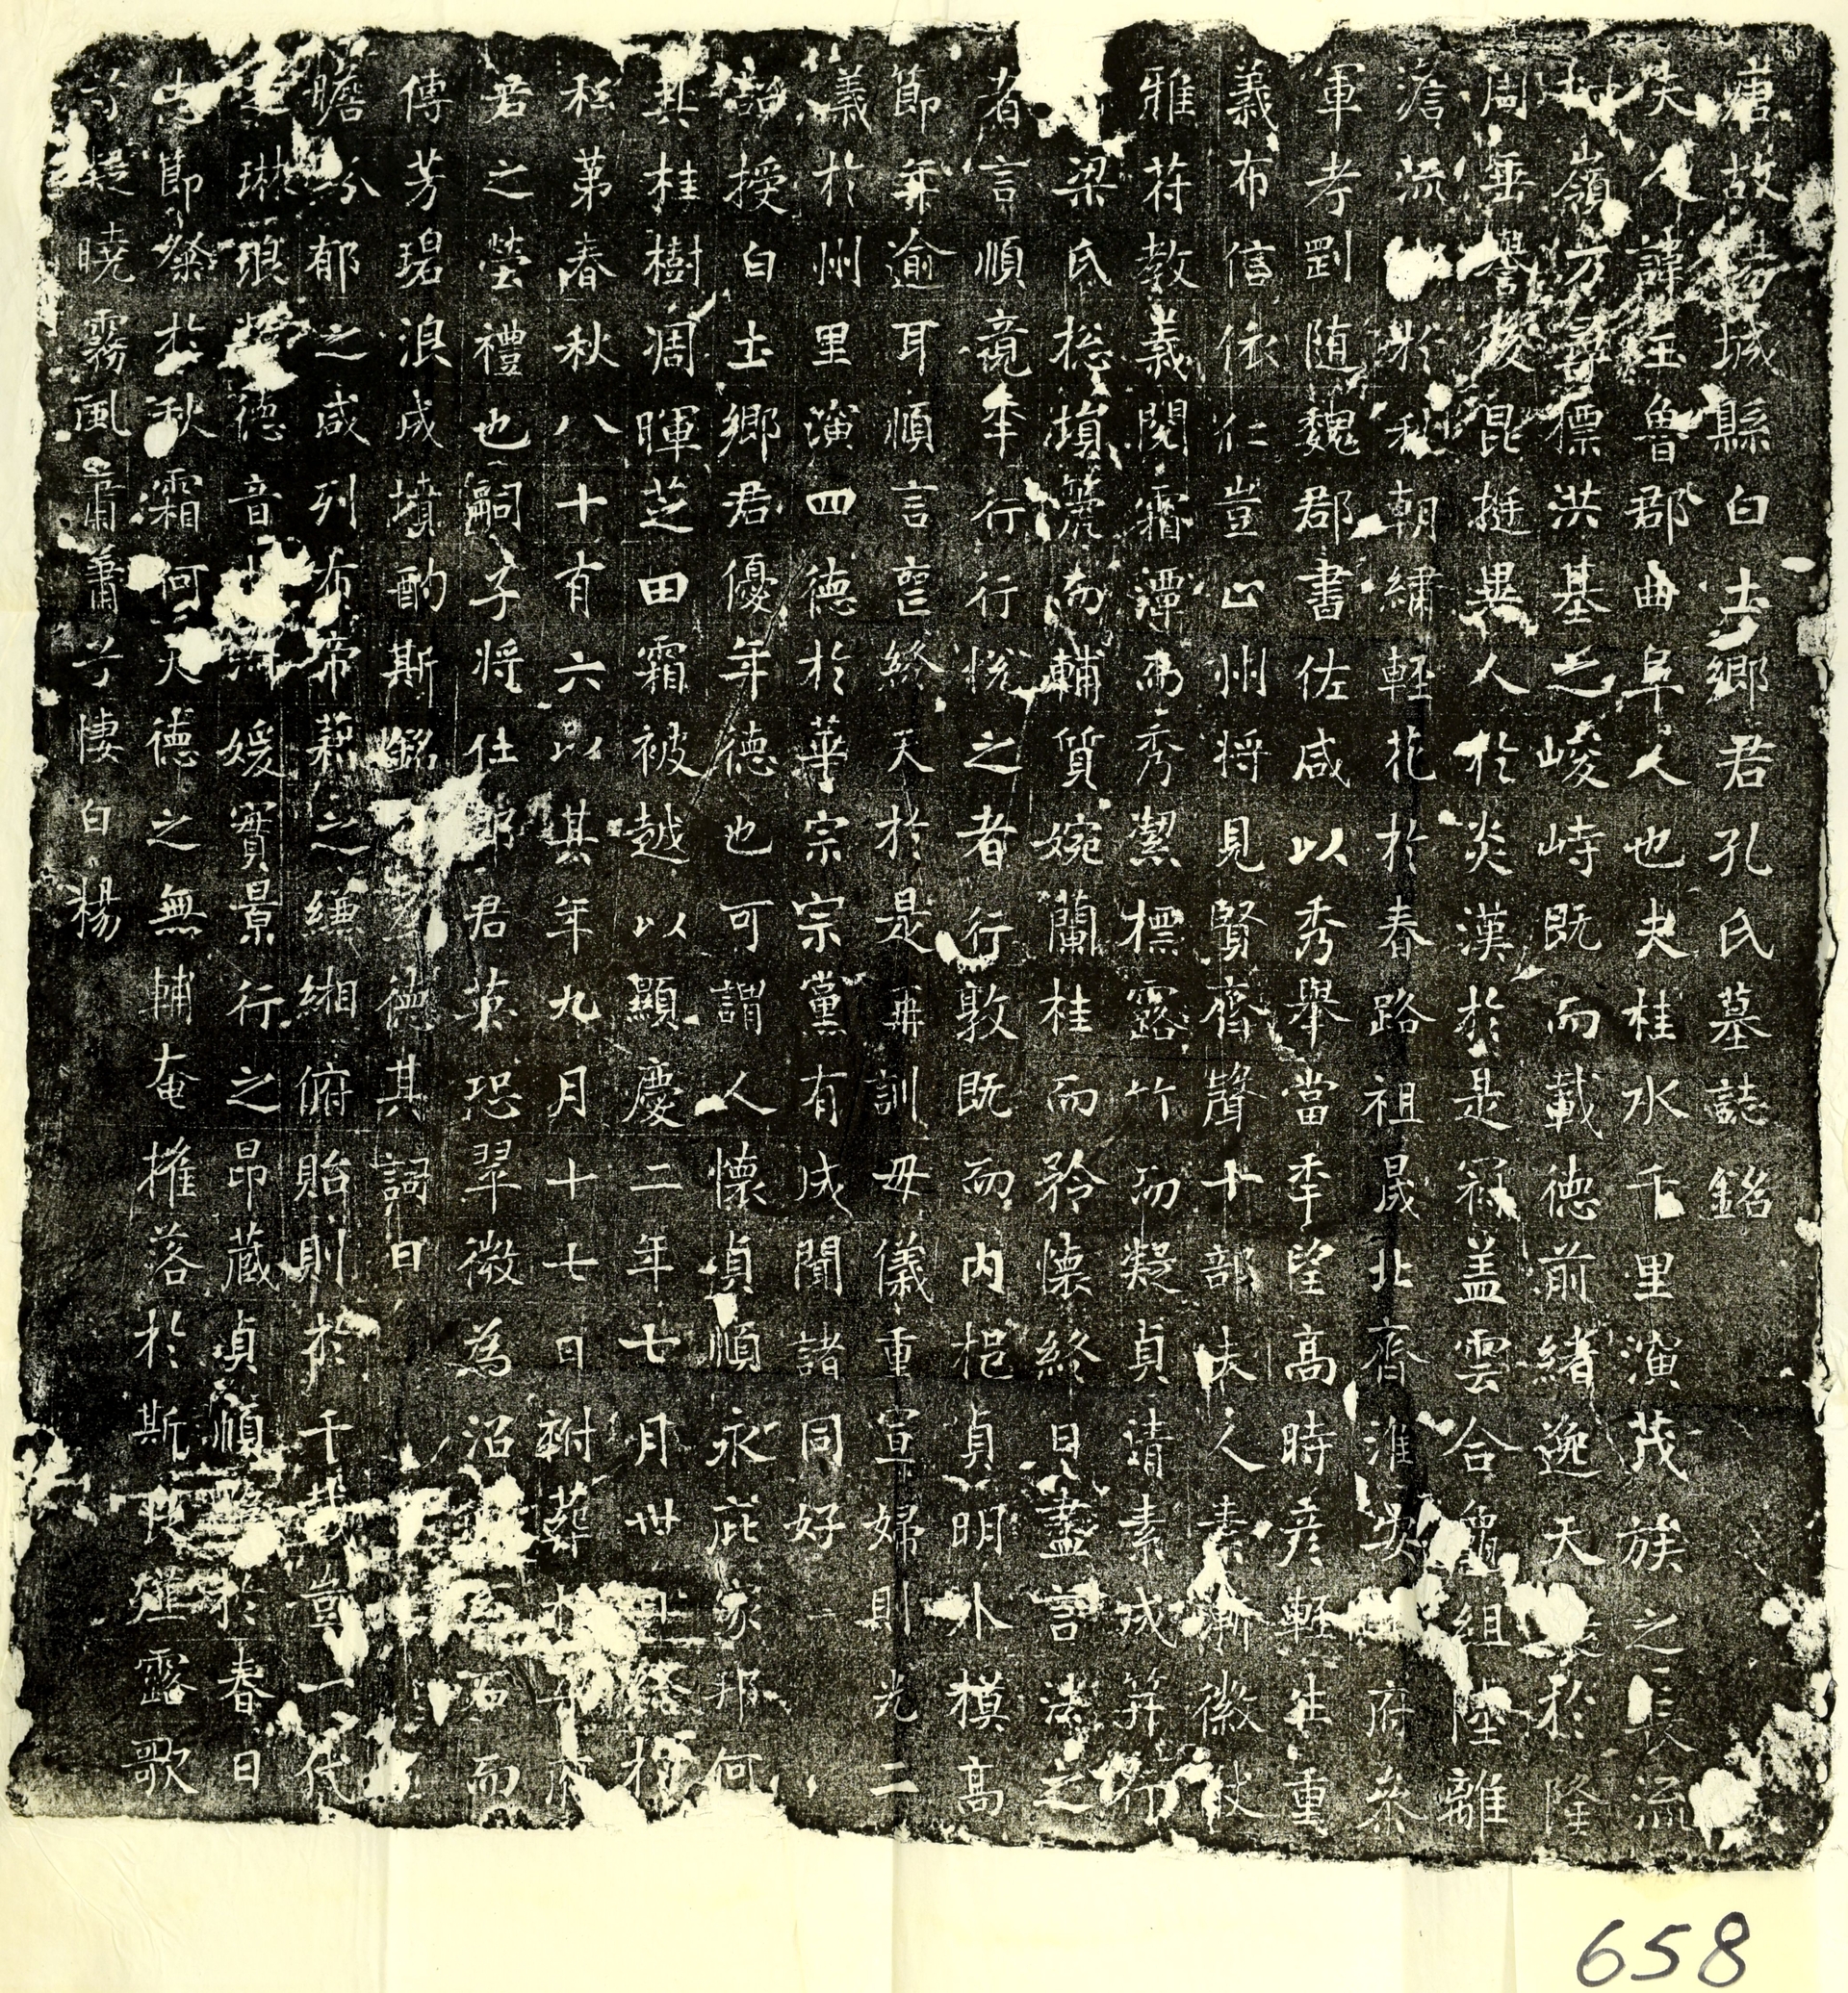 唐故陽城縣白土鄉君孔氏墓誌銘
夫人諱玉魯郡曲阜人也夫桂水千里演茂族之長流
嶺方尋標洪基之峻峙既而載德前緒逸天於隆
周垂譽後昆挺異人於炎漢於是冠蓋雲合龜組陸離
澹流於秋朝繡軽花於春路祖晟北齊淮安府叅
軍考罰随魏郡書佐咸以秀舉當年望高時彦軽生重
義布信依仁豈止州將見賢齊聲十部夫人素漸徽猷
雅苻教義閱霜潭而秀潔標露竹而凝貞清素成笄行
梁氏捴塤箎而輔質婉蘭桂而矜懷終日盡言法之
者言順竟年行行悅之者行敦既而内挹貞明外模高
節年逾耳順言喪終天於是再訓母儀重宣婦則光二
義於州里演四德於華宗宗黨有成聞諸同好
詔授白土鄉君優年德也可謂人懷貞順永庇家邦何
其桂樹凋暉芝田霜被越以顯慶二年七月卅日終於
私第春秋八十有六以其年九月十七日祔葬於府
君之塋禮也嗣子将仕郎君英恐翠微為沼而
傳芳碧浪成墳酌斯銘德其詞曰
瞻郁之咸列布帝藉之緗俯貽則於千載豈一代
琳琅德音媛實景行之昂蔵貞順於春日
節粲於秋霜何天德之無輔奄摧落於斯良薤露歌
兮凝曉霧風肅肅兮悽白楊
658